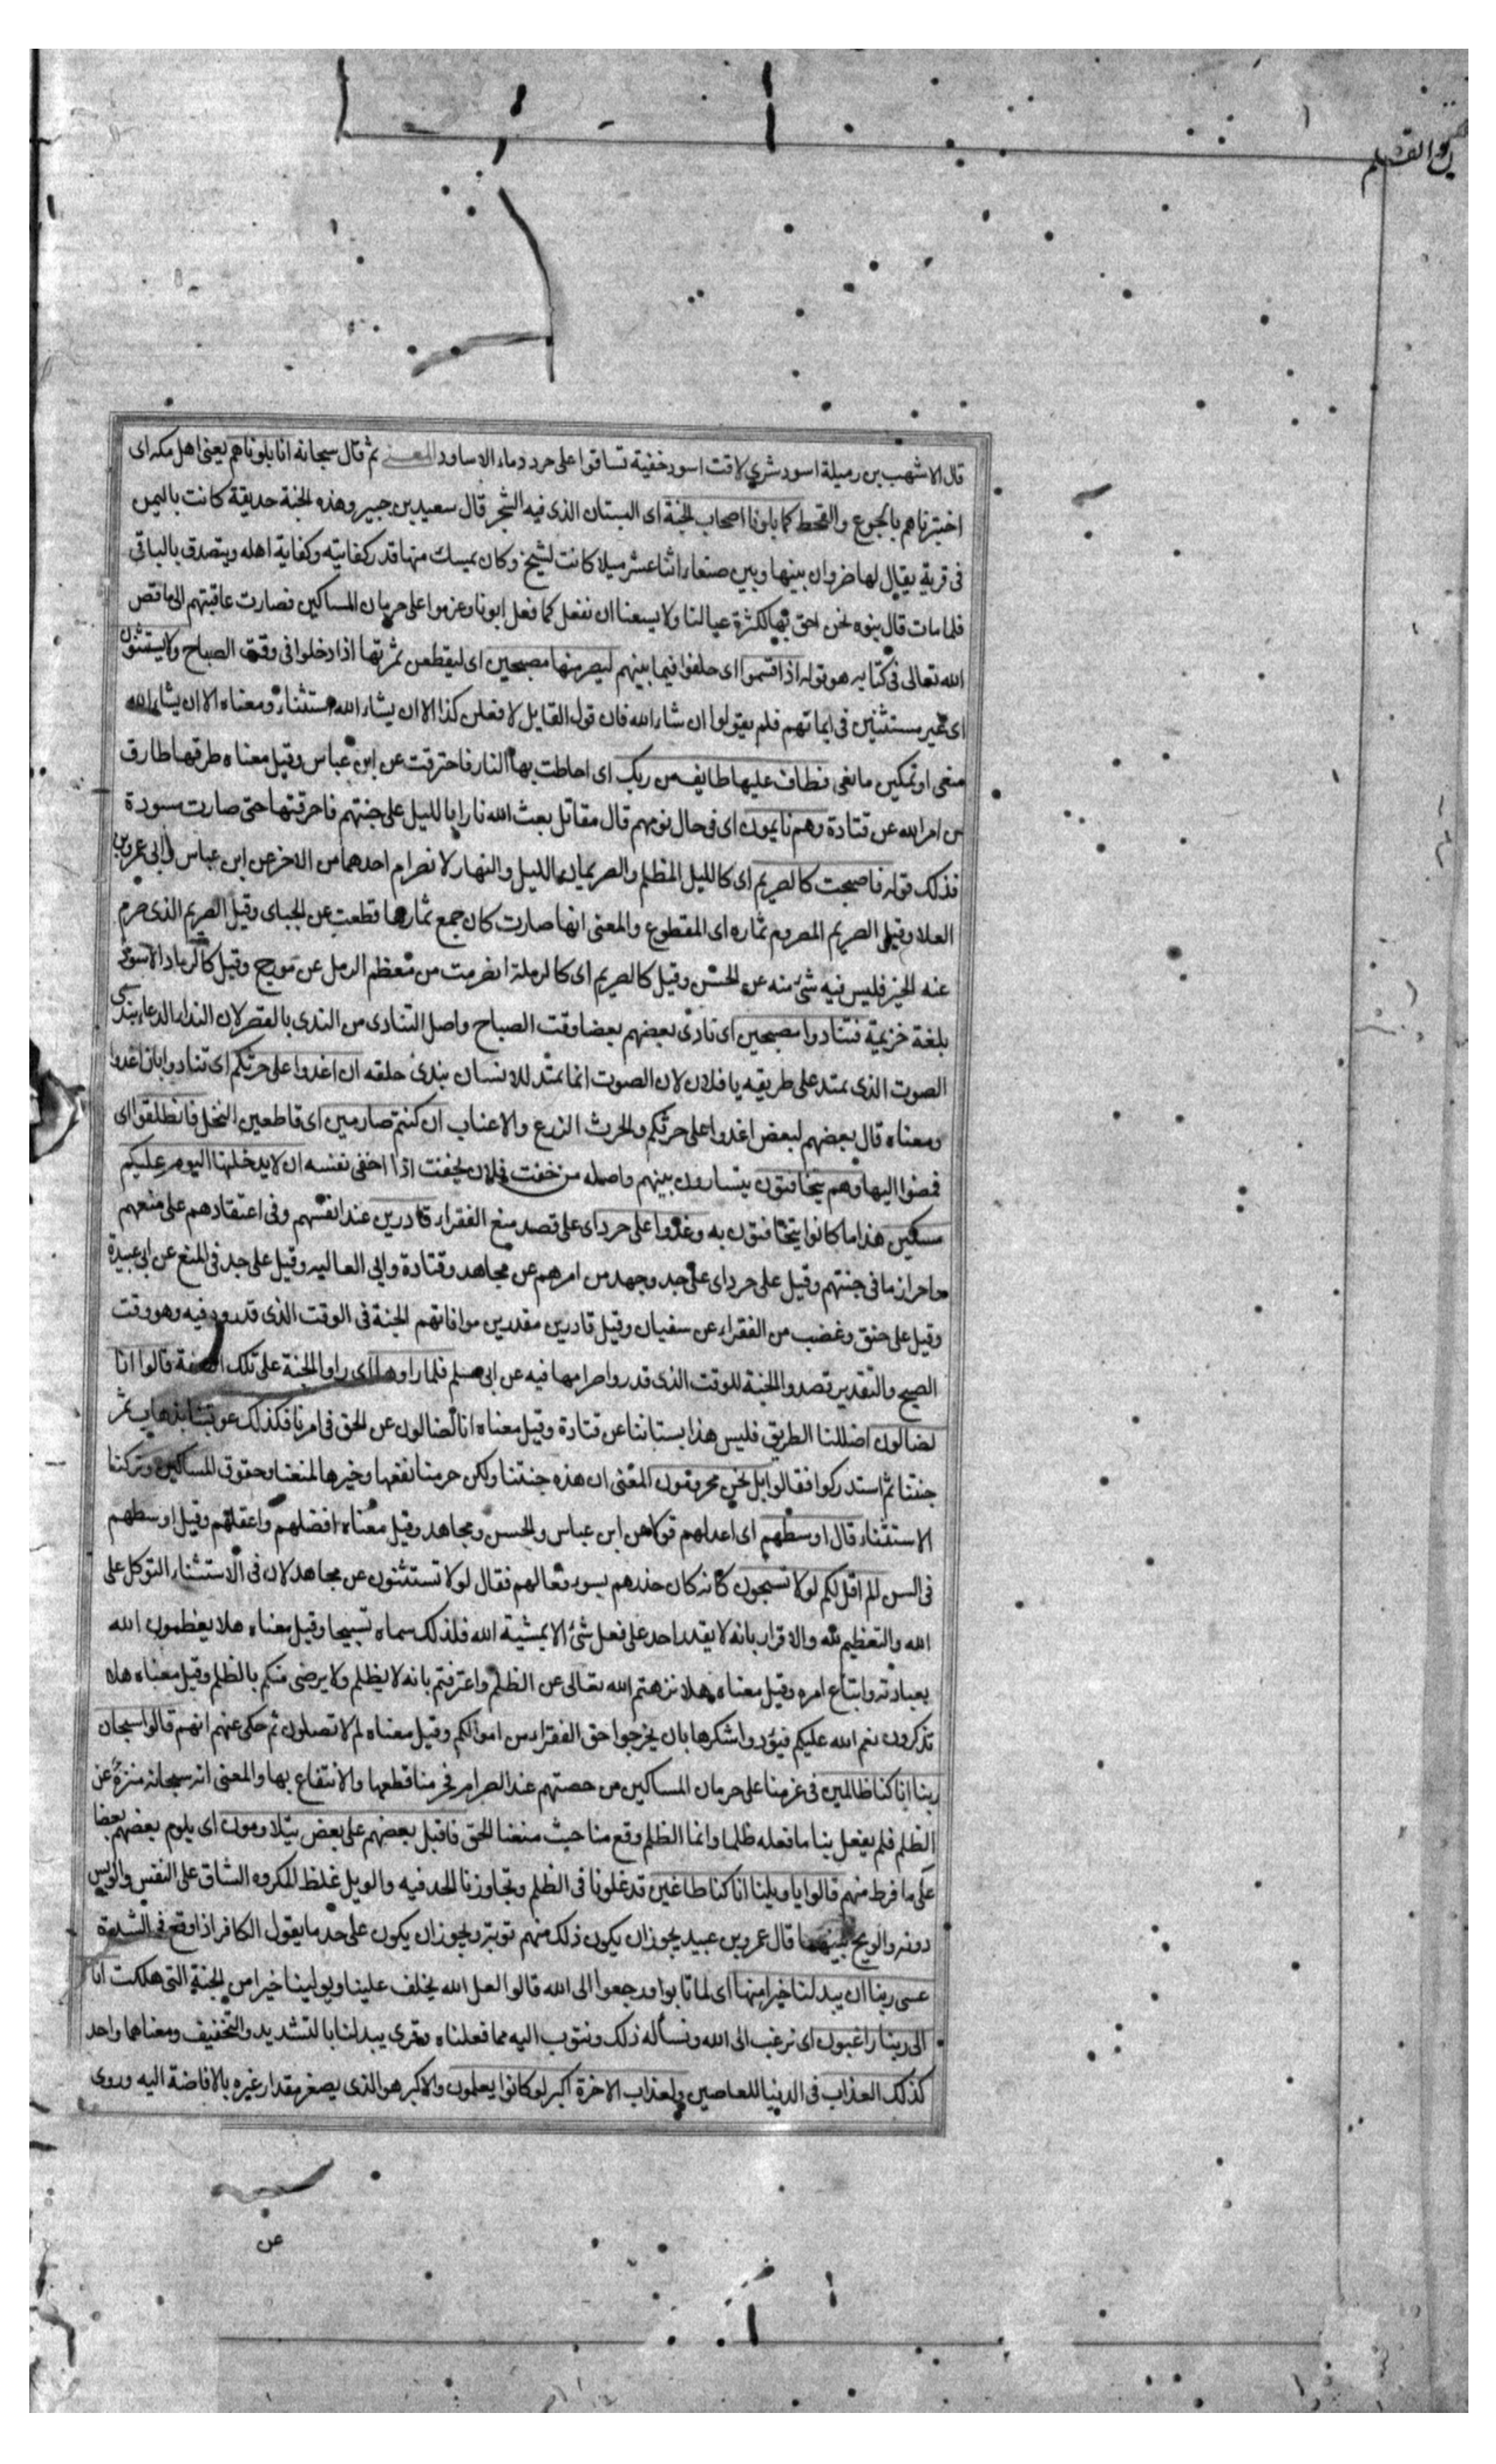 ن والقلم
قال الاشهب بن رميلة اسود شري لاقت اسود خفية تساقوا على حرد دماء الاساود المعنى ثم قال سبحانه انا بلوناهم يعنى اهل مكه اى
اختبرناهم بالجوع والقحط كما بلونا اصحاب الجنة اى البستان الذى فيه الشجر قال سعيد بن جبير وهذه الجنة حديقة كانت باليمن
فى قرية يقال لها ضروان بينها وبين صنعاء اثنا عشر ميلا كانت لشيخ وكان يمسك منها قدر كفايته وكفاية اهله ويتصدق بالباقى
فلما مات قال بنوه نحن احق بها لكثرة عيالنا ولا يسعنا ان نفعل كما فعل ابونا وعزموا على حرمان المساكين فصارت عاقبتهم الى ما قص
الله تعالى فى كتابه هو قوله اذ اقسموا اى حلفوا فيما بينهم ليصرمنها مصبحين اى ليقطعن ثمرتها اذا دخلوا فى وقت الصباح ولا يستثنون
اى غير مستثنين فى ايمانهم فلم يقولوا ان شاء الله فان قول القايل لافعلن كذا الا ان يشاء الله استثناء ومعناه الا ان يشاء الله
منعى او تمكين مانعى فطاف عليها طايف من ربك اى احاطت بها النار فاحترقت عن ابن عباس وقيل معناه طرقها طارق
من امر الله عن قتادة وهم نايمون اى فى حال نومهم قال مقاتل بعث الله نارا بالليل على جنتهم فاحرقتها حتى صارت سودة
فذلك قوله فاصبحت كالصريم اى كالليل المظلم والصريمان الليل والنهار لانصرام احدهما من الاخر عن ابن عباس وابى عمرو بن
العلا وقيل الصريم المصروم ثماره اى المقطوع والمعنى انها صارت كان جميع ثمارها قطعت عن الجبائى وقيل الصريم الذى صرم
عنه الخير فليس فيه شئ منه عن الحسن وقيل كالصريم اى كالرملة انصرمت من معظم الرمل عن مورج وقيل كالرماد الاسود
بلغة خزيمة فتنادوا مصبحين اى نادى بعضهم بعضا وقت الصباح واصل التنادى من الندى بالقصر لان النداء الدعاء بندى
الصوت الذى يمتد على طريقه يا فلان لان الصوت انما يمتد للانسان بندى حلقه ان اغدوا على حرثكم اى تنادوا بان اغدوا
ومعناه قال بعضهم لبعض اغدوا على حرثكم والحرث الزرع والاعناب ان كنتم صارمين اى قاطعين النخل فانطلقوا اى
فمضوا اليها وهم يتخافتون يتسارون بينهم واصله من خفت فلان يخفت اذا اخفى نفسه ان لا يدخلنها اليوم عليكم
مسكين هذا ما كانوا يتخافتون به وغدوا على حرد اى على قصد منع الفقراء قادرين عند انفسهم وفى اعتقادهم على منعهم
واحراز ما فى جنتهم وقيل على حرد اى على جد وجهد من امرهم عن مجاهد وقتادة وابى العاليه وقيل على جد فى المنع عن ابى عبيدة
وقيل على حنق وغضب من الفقراء عن سفيان وقيل قادرين مقدرين موافاتهم الجنة فى الوقت الذى قدروه فيه وهو وقت
الصبح والتقدير قصدوا الجنة للوقت الذى قدروا صرامها فيه عن ابى مسلم فلما راوها اى راوا الجنة على تلك الصفة قالوا انا
لضالون اضللنا الطريق فليس هذا بستاننا عن قتادة وقيل معناه انا لضالون عن الحق فى امرنا فكذلك عوقبنا بذهاب ثمر
جنتنا ثم استدركوا فقالوا بل نحن محرومون المعنى ان هذه جنتنا ولكن حرمنا نفعها وخيرها لمنعنا حقوق المساكين وتركنا
الاستثناء قال اوسطهم اى اعدلهم قولا عن ابن عباس والحسن ومجاهد وقيل معناه افضلهم واعقلهم وقيل اوسطهم
فى السن الم اقل لكم لولا تسبحون كانه كان حذرهم سوء فعالهم فقال لولا تستثنون عن مجاهد لان فى الاستثناء التوكل على
الله والتعظيم لله والاقرار بانه لا يقدر احد على فعل شئ الا بمشية الله فلذلك سماه تسبيحا وقيل معناه هلا يعظمون الله
بعبادته واتباع امره وقيل معناه هلا نزهتم الله تعالى عن الظلم واعترفتم بانه لا يظلم ولا يرضى منكم بالظلم وقيل معناه هلا
تذكرون نعم الله عليكم فتؤدوا شكرها بان يخرجوا حق الفقراء من اموالكم وقيل معناه لم لا تصلون ثم حكى عنهم انهم قالوا سبحان
ربنا انا كنا ظالمين فى عزمنا على حرمان المساكين من حصتهم عند الصرام فحرمنا قطعها والانتفاع بها والمعنى انه سبحانه منزه عن
الظلم فلم يفعل بنا ما فعله ظلما وانما الظلم وقع منا حيث منعنا الحق فاقبل بعضهم على بعض يتلاومون اى يلوم بعضهم بعضا
على ما فرط منهم قالوا يا ويلنا انا كنا طاغين قد غلونا فى الظلم وتجاوزنا الحد فيه والويل غلظ المكروه الشاق على النفس والويس
دونه والويح بينهما قال عمرو بن عبيد يجوز ان يكون ذلك منهم توبة ويجوز ان يكون على حد ما يقول الكافر اذا وقع فى الشدة
عسى ربنا ان يبدلنا خيرا منها اى لما تابوا ورجعوا الى الله قالوا لعل الله يخلف علينا ويولينا خيرا من الجنة التى هلكت انا
الى ربنا راغبون اى نرغب الى الله ونسأله ذلك ونتوب اليه مما فعلناه وقرى يبدلنا بالتشديد والتخفيف ومعناهما واحد
كذلك العذاب فى الدنيا للعاصين ولعذاب الاخرة اكبر لو كانوا يعلمون والاكبر هو الذى يصغر مقدار غيره بالاضافة اليه وروى
عن